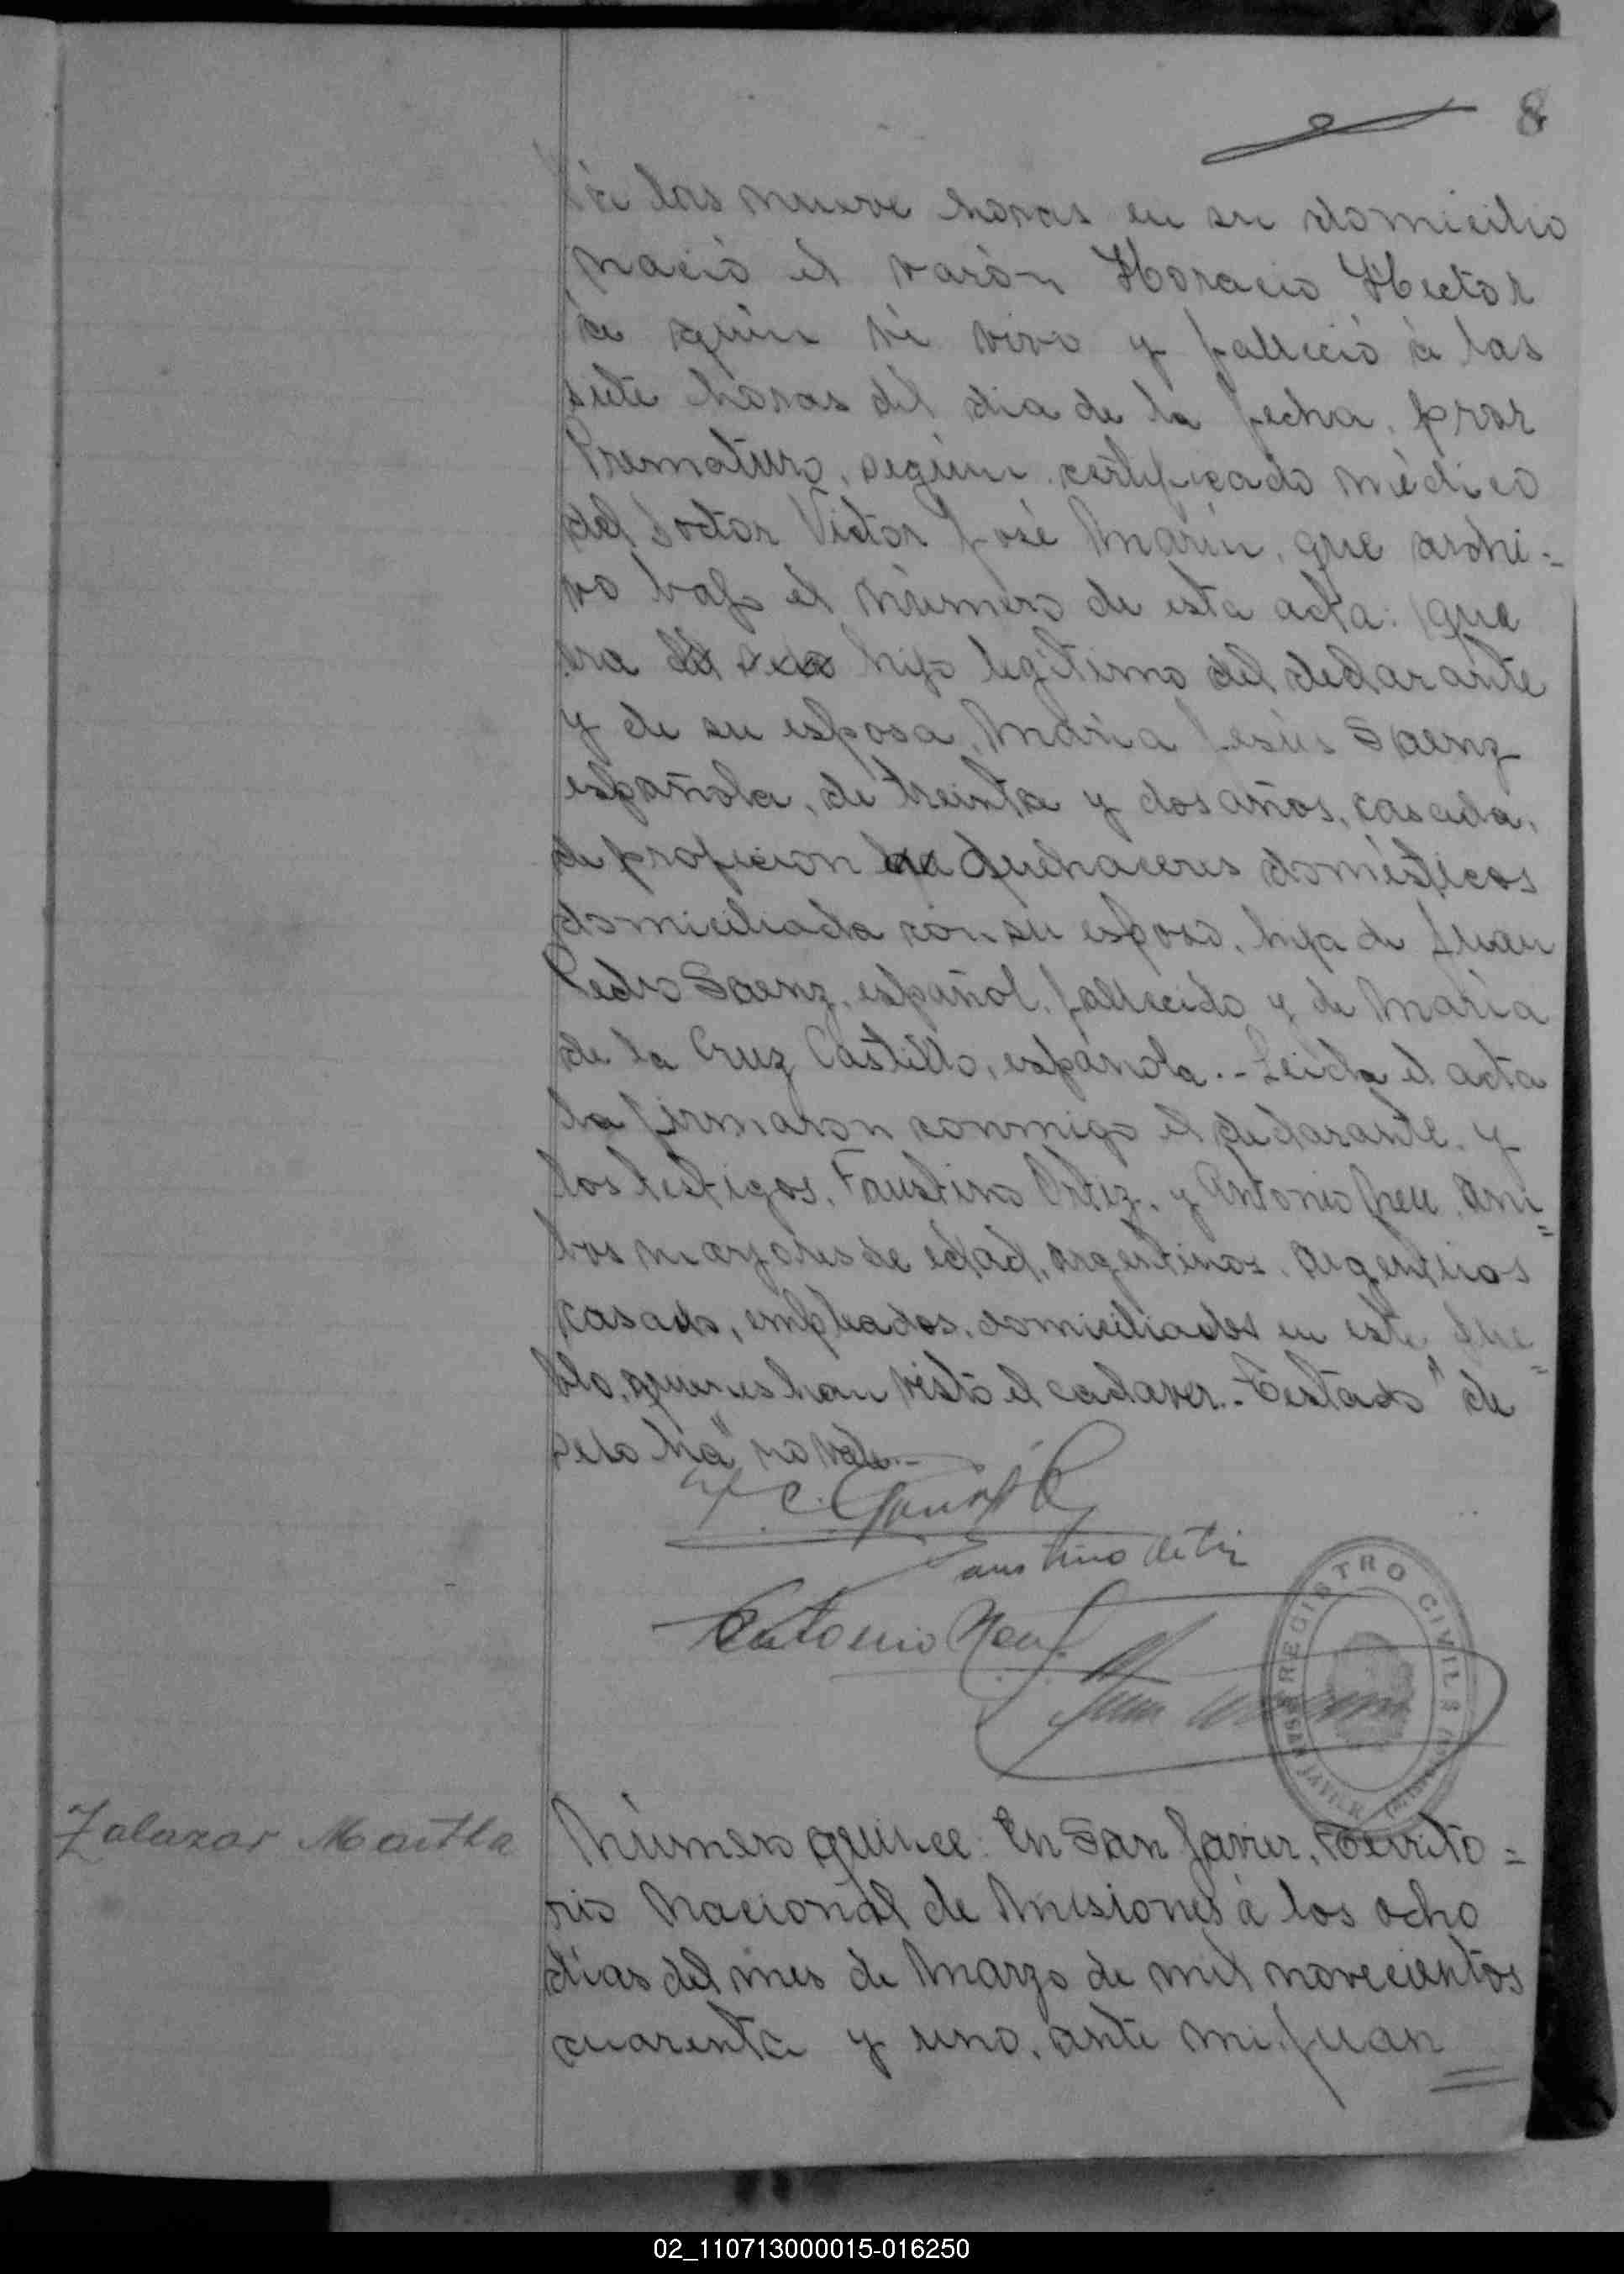 8
á las nueve horas en su domicilio
nació el varón Horacio Hector
a quien vi vivo y falleció á las
siete horas del dia de la fecha, por
Prematuro, según certificado médico
del Doctor Victor José Marin, que archi=
vo bajo el número de esta acta: que
era hijo legítimo del declarante
y de su esposa, Maria Jesús Saenz
española, de treinta y dos años, casada,
de proficion quehaceres domésticos
domiciliada con su esposo, hija de Juan
Pedro Saenz, español, fallecido y de María
de la Cruz Castillo, española.- Leida el acta
la firmaron conmigo el declarante y
los testigos, Faustino Ortiz, y Antonio Neu, am=
bos mayores de edad, argentinos, argentinos
casado, empleados, domiciliados en este pue=
blo, quienes han visto el cadaver.- Testado "de
no vale.-
Faustino Ortiz
Antonio Neu
REGISTRO CIVIL
SAN JAVIER
Zalazar Martha
Número quince: En San Javier, Territo=
rio Nacional de Misiones á los ocho
días del mes de Marzo de mil novecientos
cuarenta y uno, ante mi, Juan
02_110713000015-016250